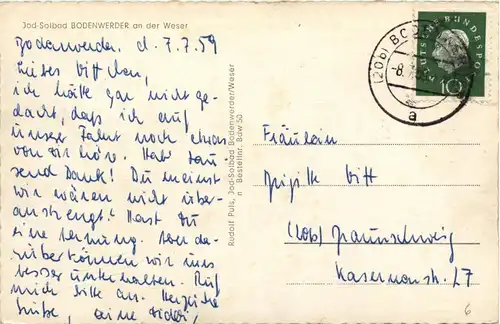 Jod-Solbad BODENWERDER an der Weser
Bodenwerder, d. 7.7.59
Liebes Vittchen,
ich hätte gar nicht ge-
dacht, daß ich auf
unserer Fahrt noch etwas
von dir hör. Hab tau-
send Dank! Du meinst
wir wären nicht über-
anstrengt? Hast Du
eine Ahnung. Aber da-
rüber können wir uns
besser unterhalten. Ruf
mich bitte an. Herzliche
Grüße, deine
Rudolf Puls, Jod-Solbad Bodenwerder/Weser
n Bestellnr. Bdw 50
DEUTSCHE BUNDESPOST
10
(20b) BODENWERDER
-8.
a
Fräulein
Brigitte Vitt
(20b) Braunschweig
Kasernenstr. 27
6